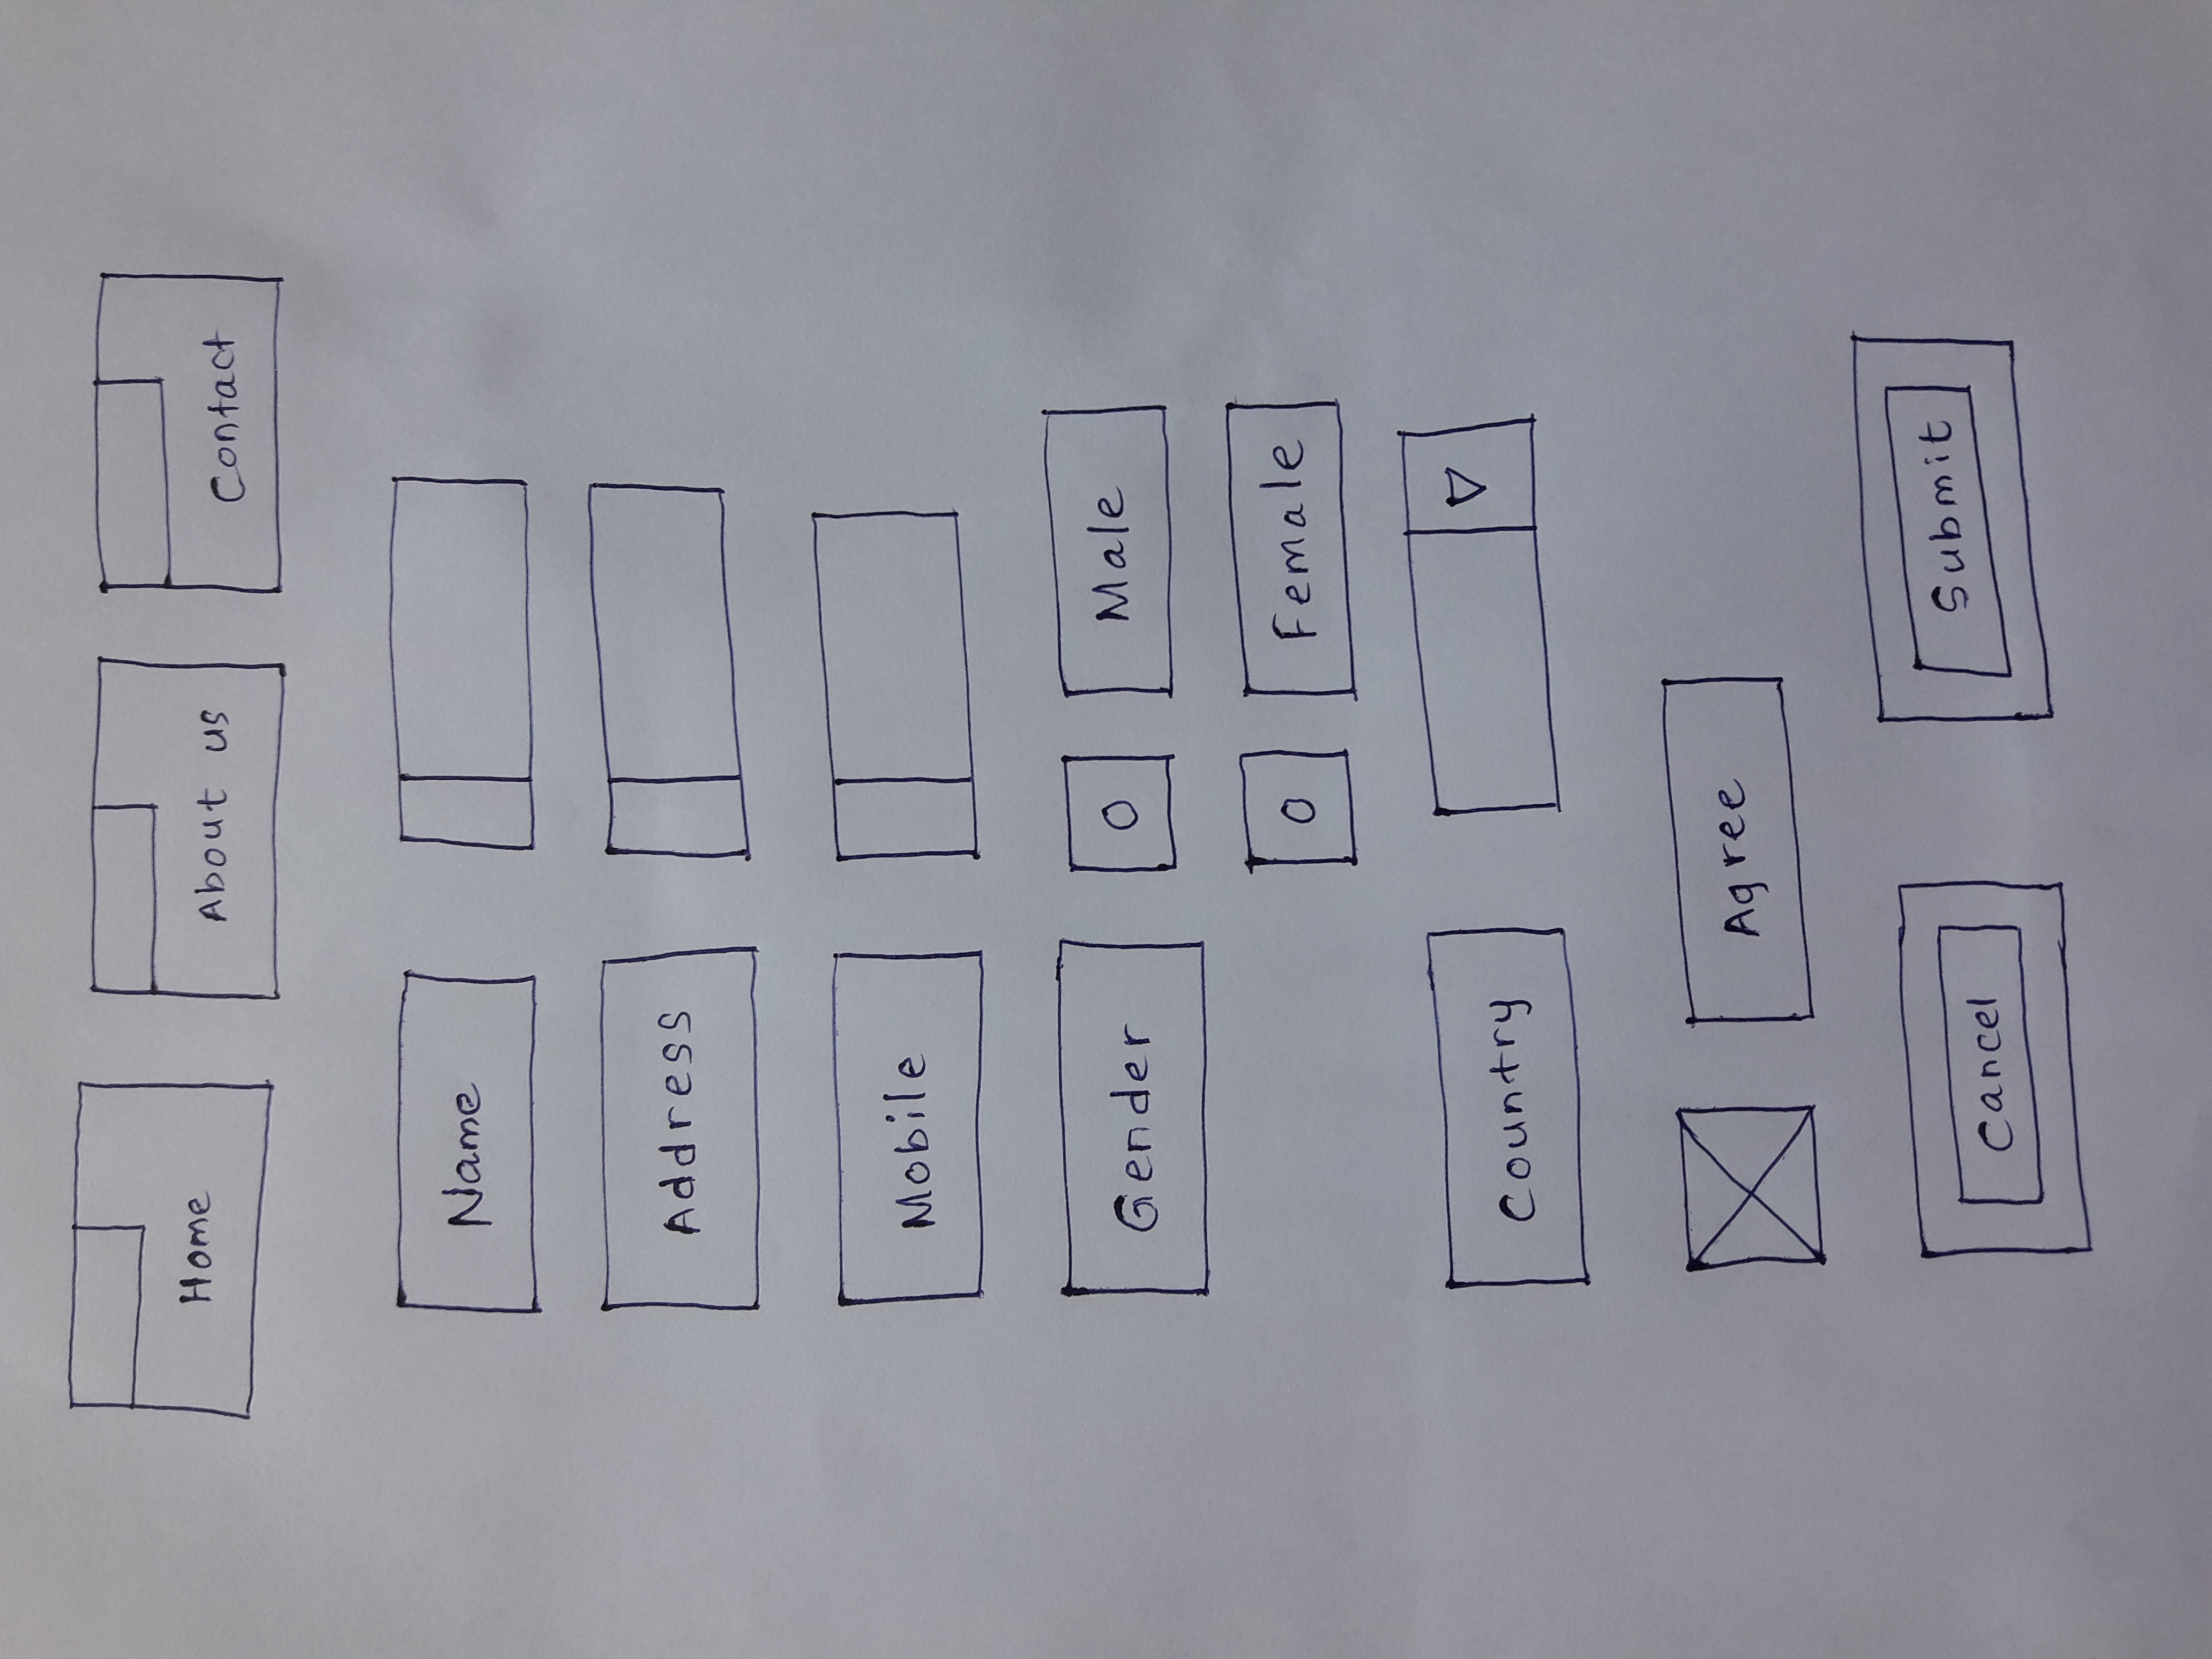 Home About us Contact
Name
Address
Mobile
Gender O Male
O Female
Country
Agree
Cancel Submit